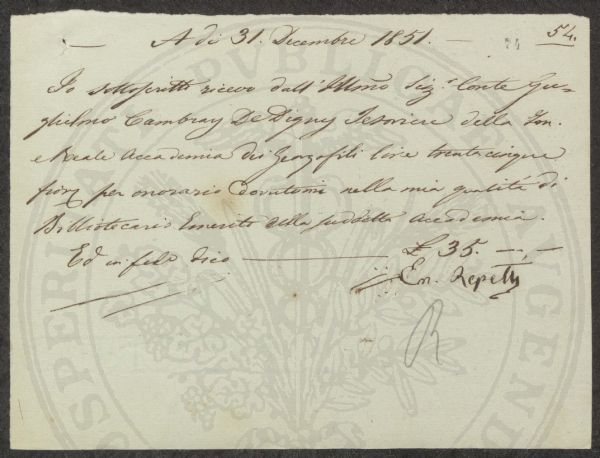 A dì 31. Decembre 1851. 54.
Io sottoscritto ricevo dall'Illmo Sig.r Conte Gu=
glielmo Cambray De Digny Tesoriere della Im.
e Reale Accademia dei Georgofili lire trentacinque
fior. per onorario dovutomi nella mia qualità di
Bibliotecario Emerito della suddetta Accademia.
Ed in fede dico £ 35. —,—
Em. Repetti
R
PROSPERITATI REIPUBLICAE AUGENDAE